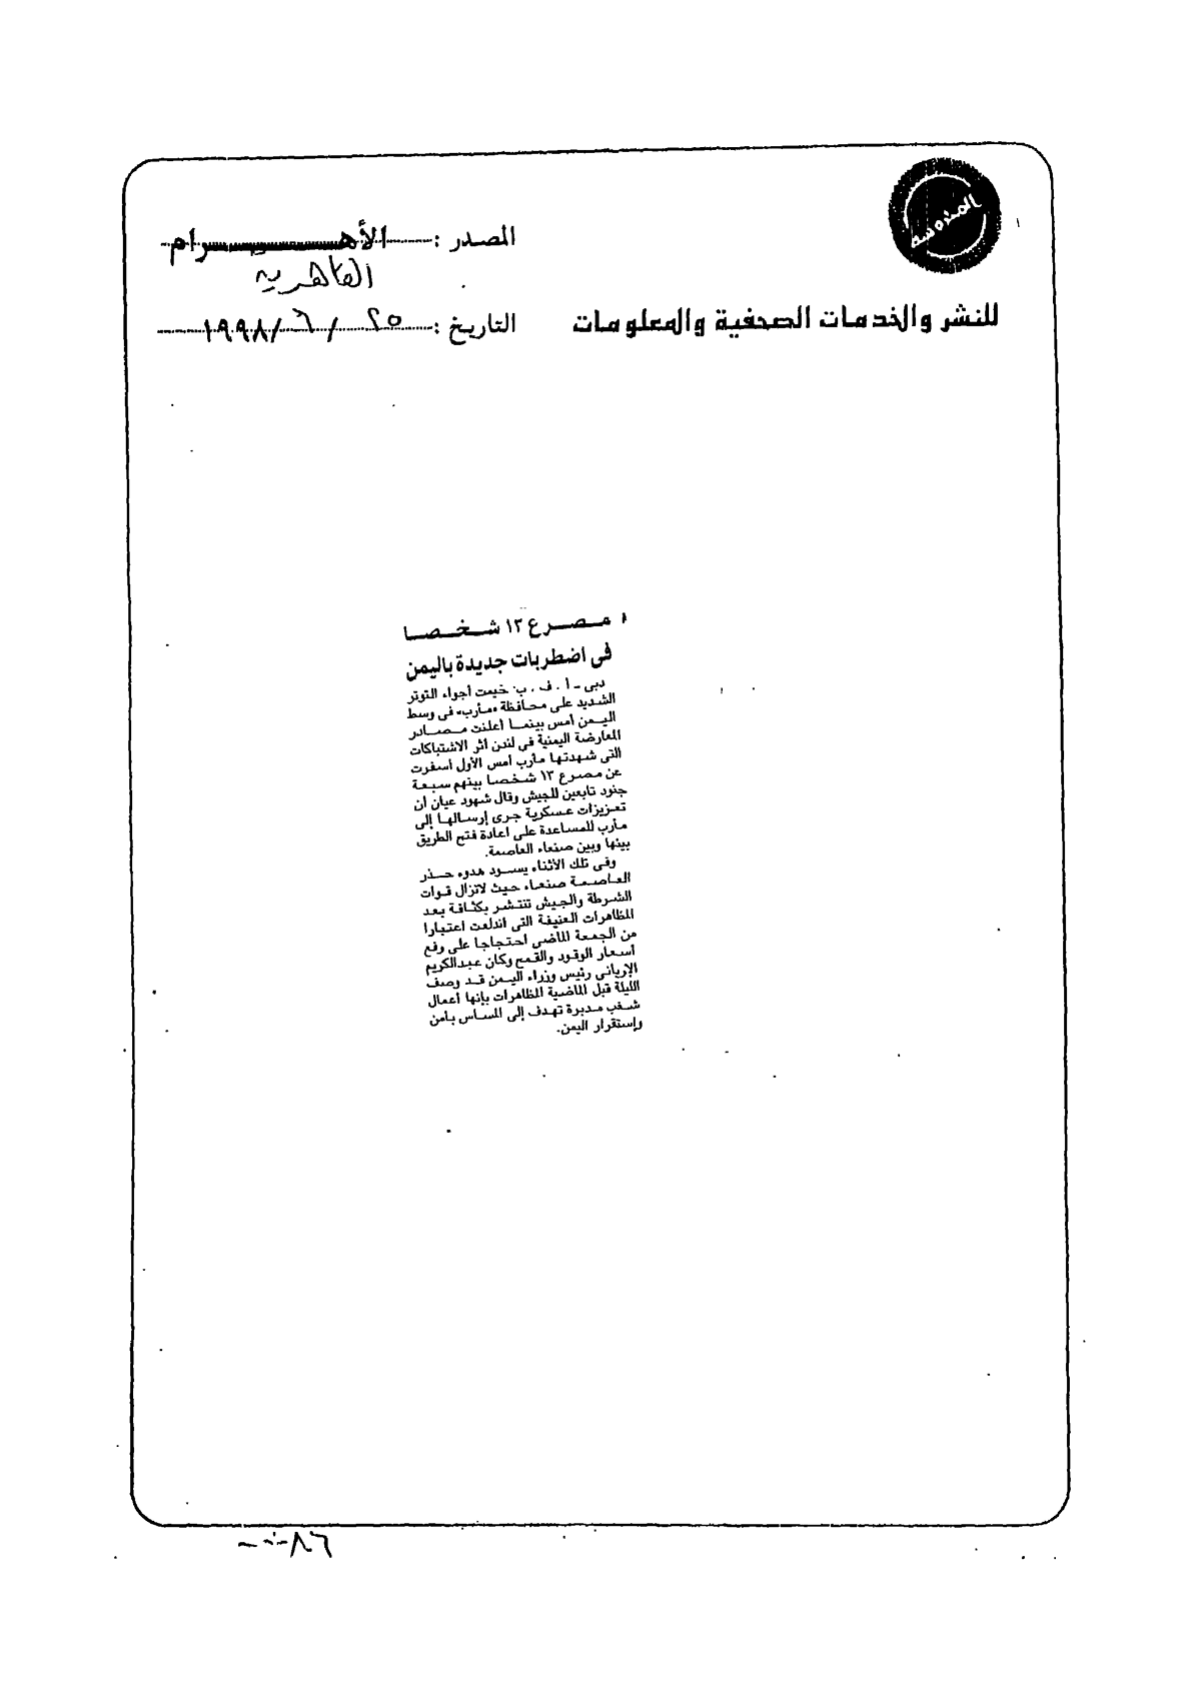 المصدر : الأهـــــرام
القاهرية
للنشر والخدمات الصحفية والمعلومات
التاريخ : ٢٥ / ٦ / ١٩٩٨
مصرع ١٣ شخصا
فى اضطربات جديدة باليمن
دبى ـ أ . ف . ب: خيمت أجواء التوتر
الشديد على محافظة «مأرب» فى وسط
اليمن أمس بينما أعلنت مصادر
المعارضة اليمنية فى لندن أثر الاشتباكات
التى شهدتها مأرب أمس الأول أسفرت
عن مصرع ١٣ شخصا بينهم سبعة
جنود تابعين للجيش وقال شهود عيان ان
تعزيزات عسكرية جرى إرسالها إلى
مأرب للمساعدة على اعادة فتح الطريق
بينها وبين صنعاء العاصمة.
وفى تلك الأثناء يسود هدوء حذر
العاصمة صنعاء حيث لاتزال قوات
الشرطة والجيش تنتشر بكثافة بعد
المظاهرات العنيفة التى اندلعت اعتبارا
من الجمعة الماضى احتجاجا على رفع
أسعار الوقود والقمح وكان عبدالكريم
الإريانى رئيس وزراء اليمن قد وصف
الليلة قبل الماضية المظاهرات بإنها أعمال
شغب مدبرة تهدف إلى المساس بامن
وإستقرار اليمن.